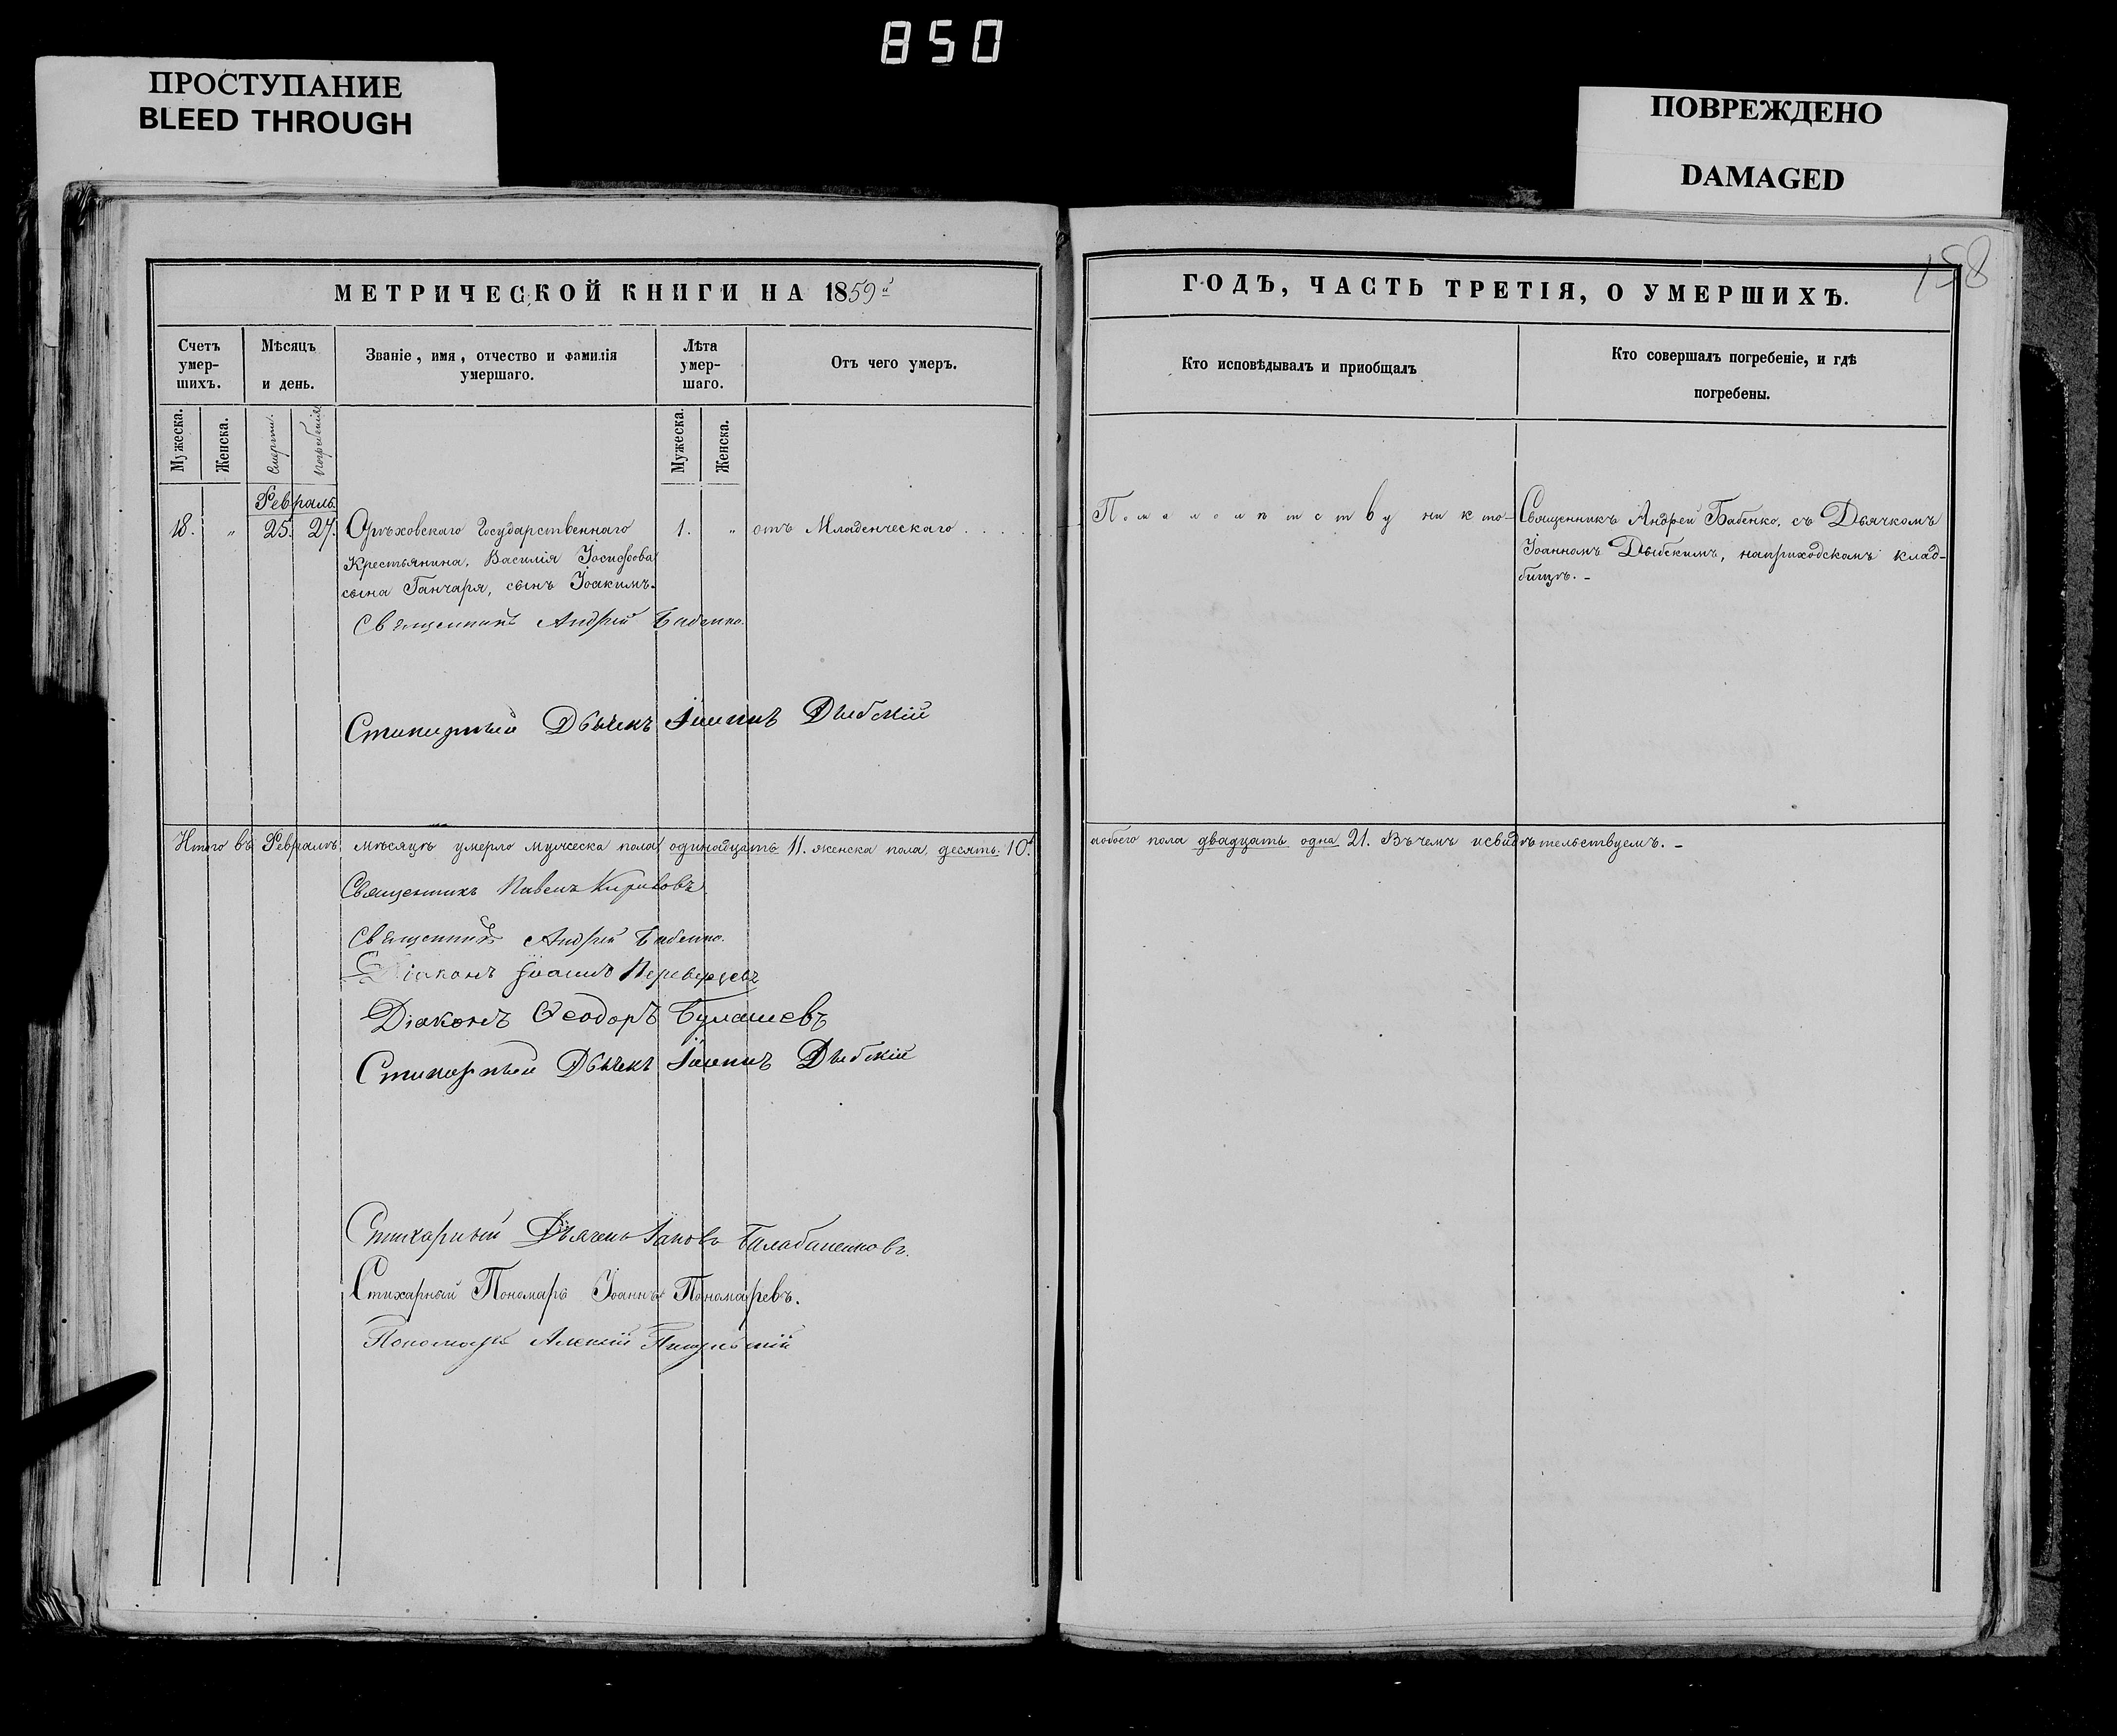 850
ПРОСТУПАНИЕ
BLEED THROUGH
ПОВРЕЖДЕНО
DAMAGED
158
МЕТРИЧЕСКОЙ КНИГИ НА 1859й
Счетъ умер-шихъ.
Мѣсяцъ и день.
Званіе, имя, отчество и фамилія умершаго.
Лѣта умер-шаго.
Отъ чего умеръ.
Мужеска.
Женска.
Смерти.
Погребенія
Мужеска.
Женска.
Февраль.
18. " 25. 27. Орѣховскаго Государственнаго 1. " отъ Младенческаго . . . .
Крестьянина, Василія Іосифова
сына Ганчаря, сынъ Іоакимъ.
Священникъ Андрей Бабенко.
Стихарный Дьячекъ Іоаннъ Дыбскій
Итого въ Февралѣ мѣсяцѣ умерло мужеска пола одинадцать 11. женска пола, десять 10.
Священникъ Павелъ
Священникъ Андрей Бабенко.
Діаконъ Іоаннъ
Діаконъ Ѳеодоръ
Стихарный Дьячекъ Іоаннъ Дыбскій
Стихарный Дьячекъ Іаковъ
Стихарный Пономарь Іоаннъ Пономаревъ.
Пономарь Алексій
ГОДЪ, ЧАСТЬ ТРЕТІЯ, О УМЕРШИХЪ.
Кто исповѣдывалъ и пріобщалъ
Кто совершалъ погребеніе, и гдѣ погребены.
По малолѣтству никто
Священникъ Андрей Бабенко, съ Дьячкомъ
Іоанномъ Дыбскимъ, наприходскомъ клад-
бищѣ. -
аобоего пола двадцать одна 21. Въ чемъ исвидѣтельствуемъ. -